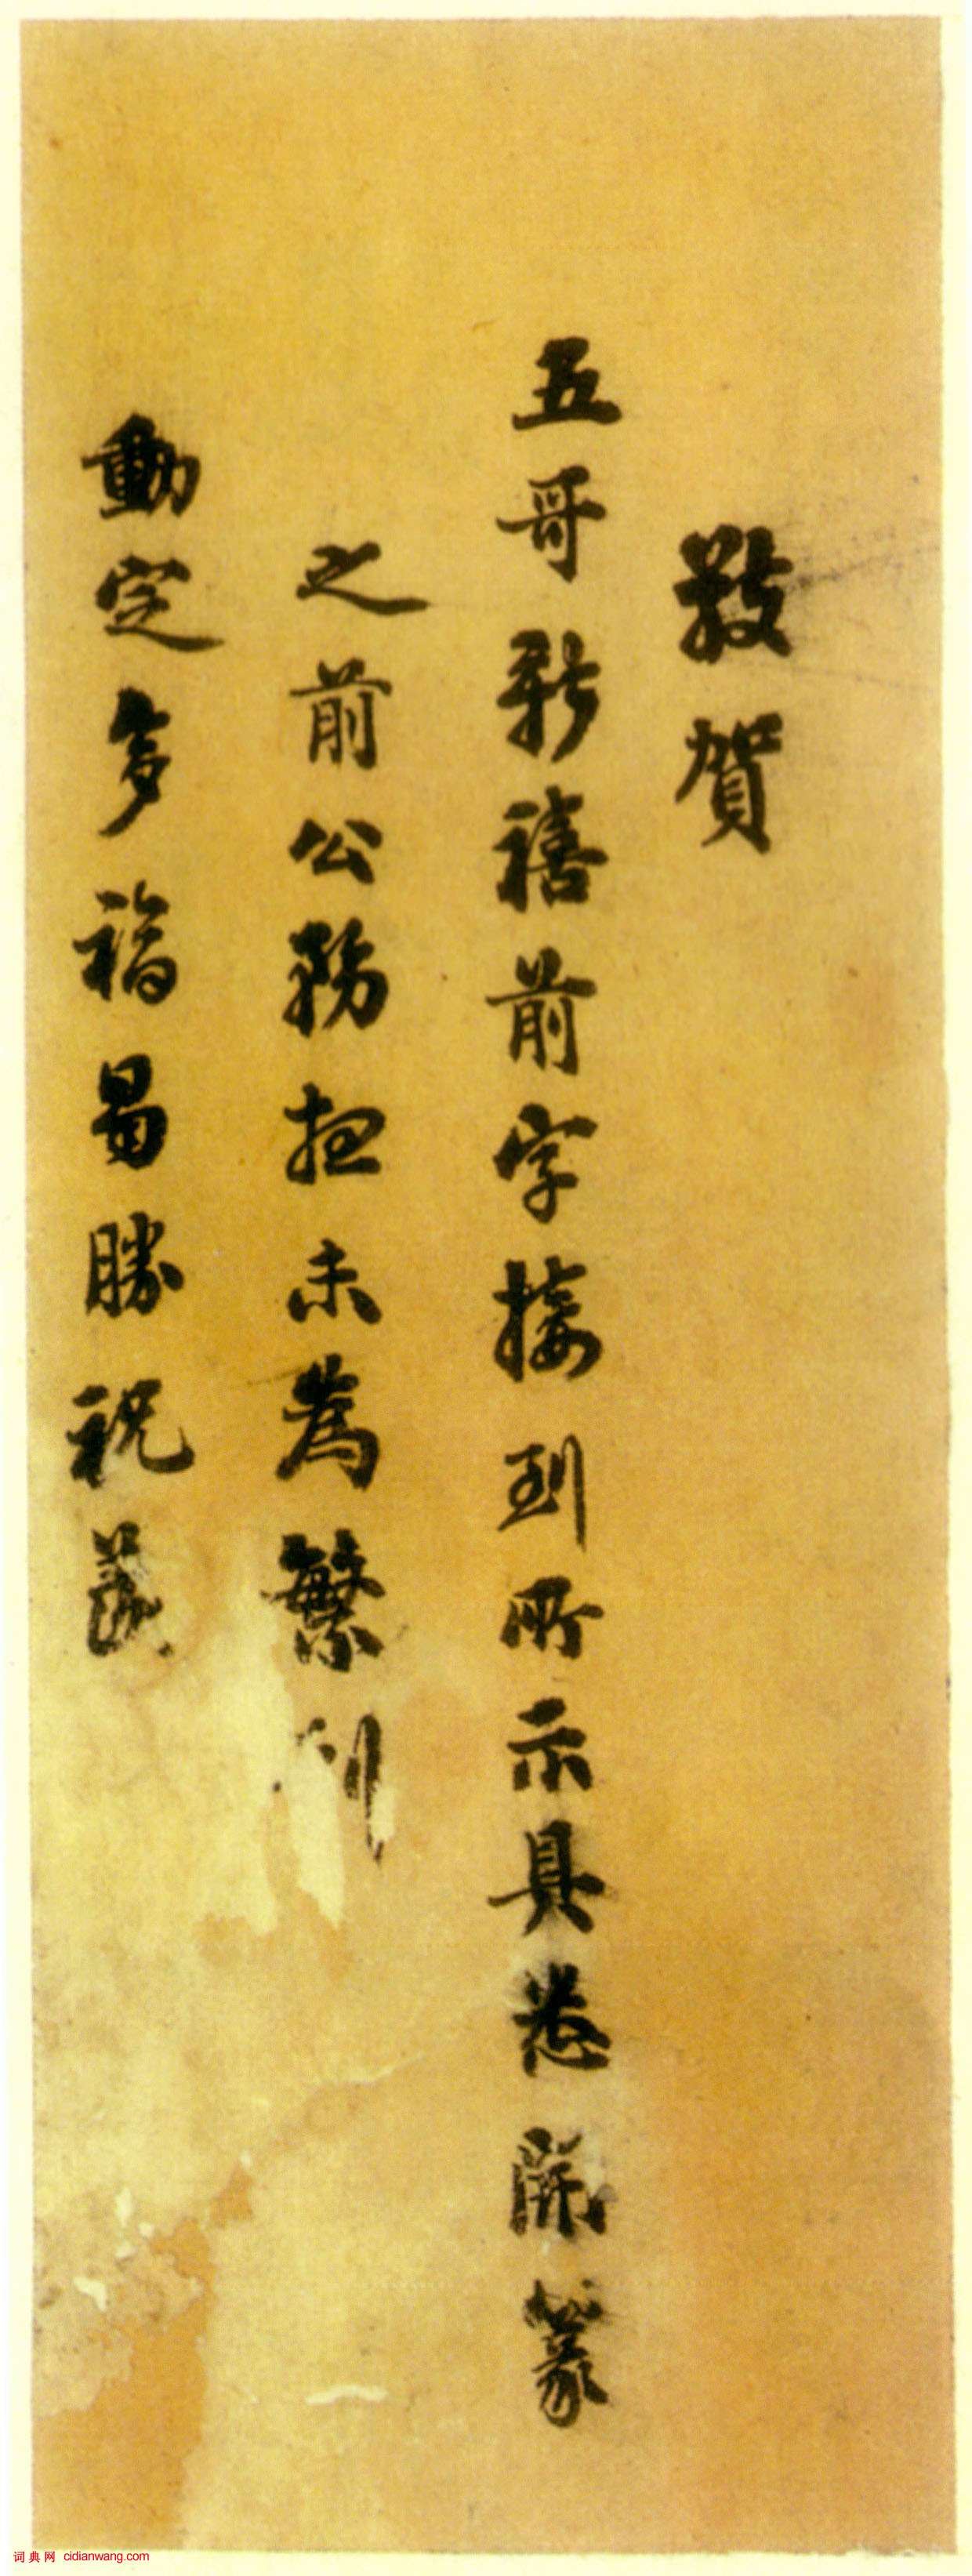 敬賀
五哥新禧前字接到所示具悉開篆
之前公務未為繁
動定多福曷勝祝羨
词典网 cidianwang.com